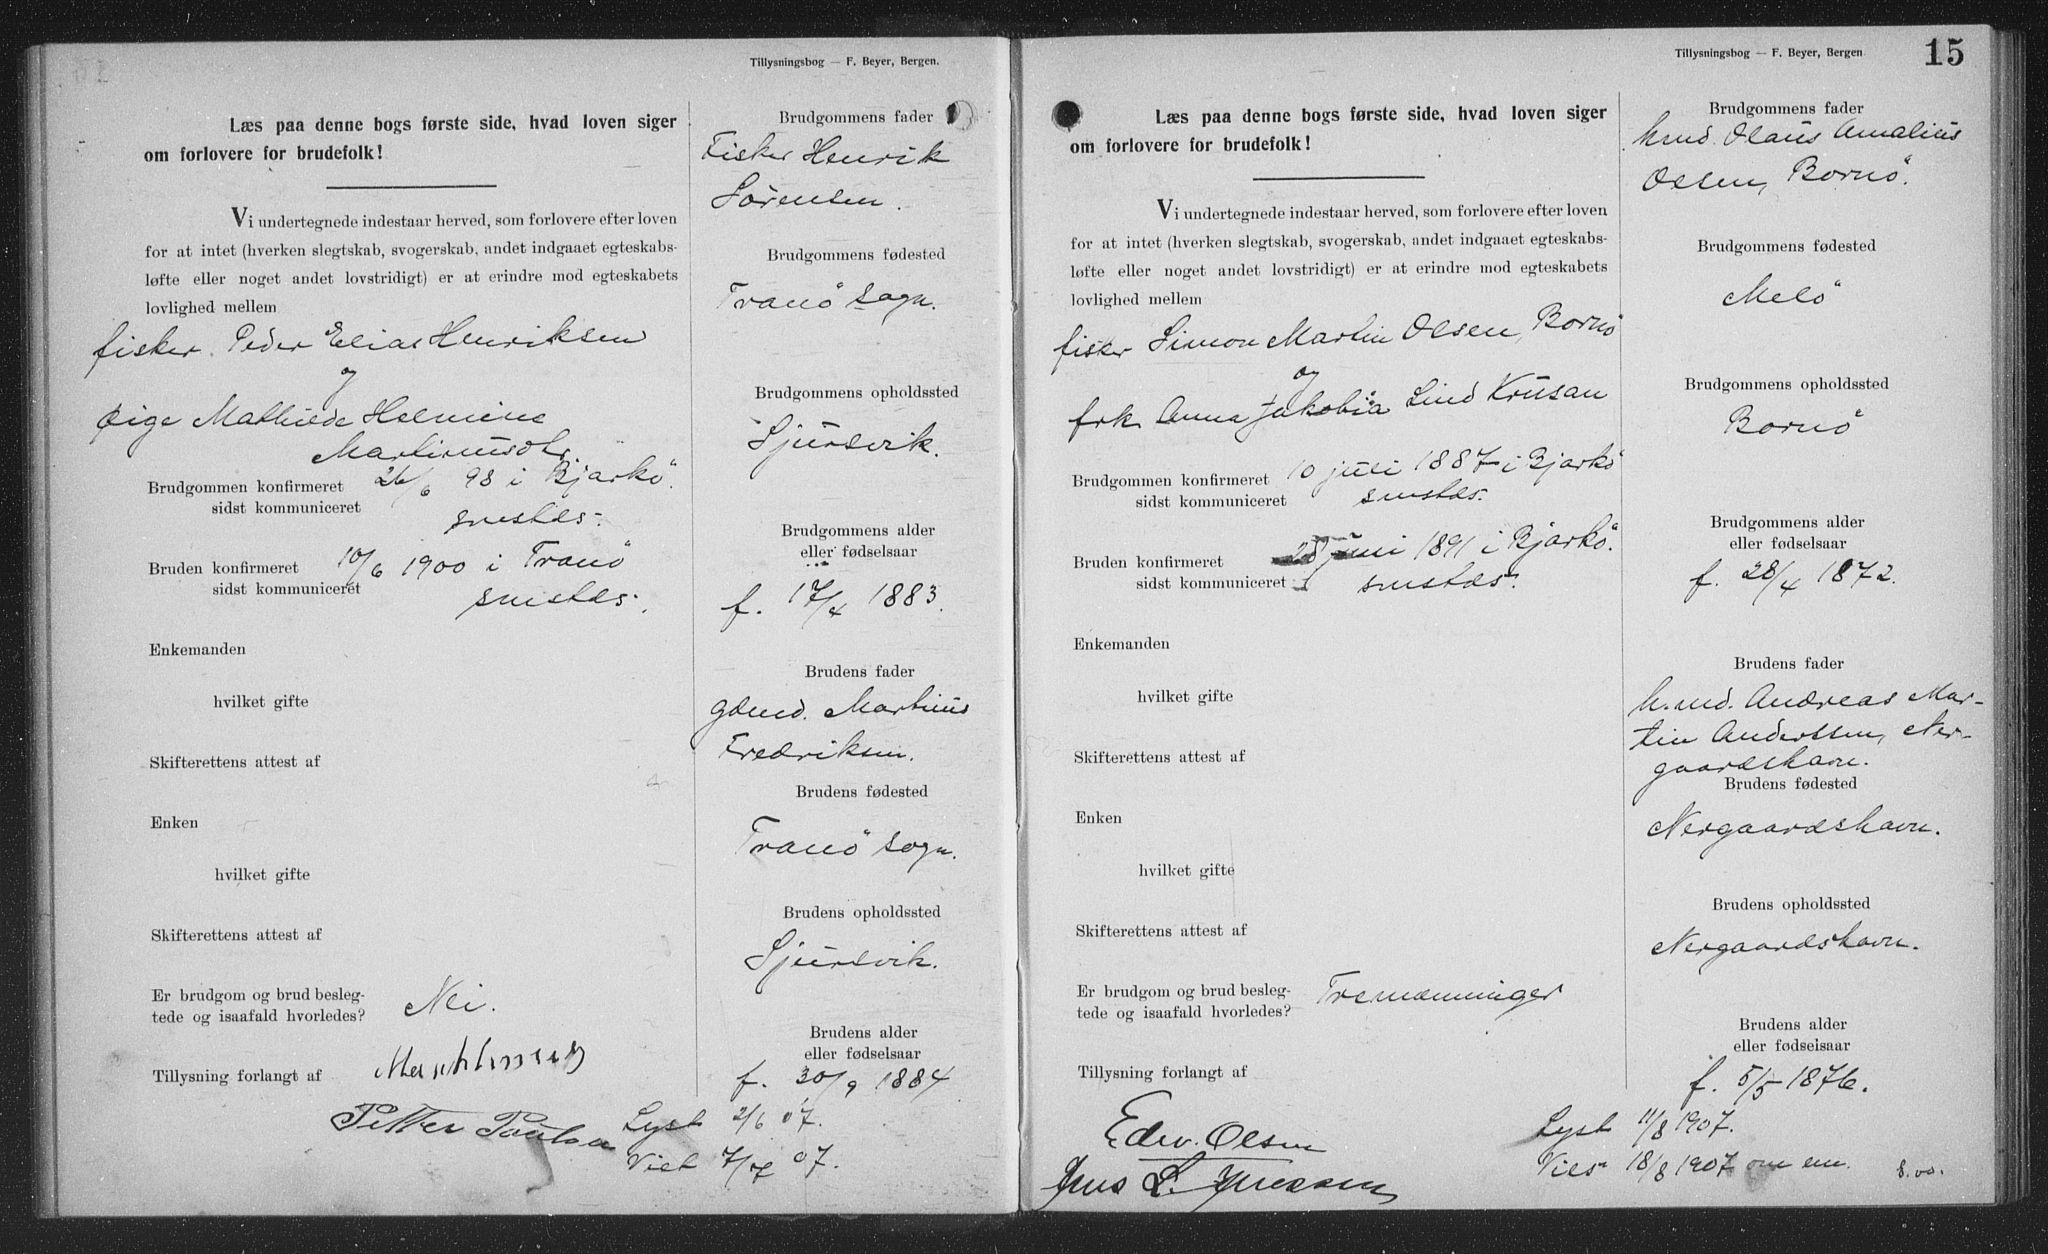 Tillysningsbog — F. Beyer, Bergen.
Læs paa denne bogs første side, hvad loven siger
om forlovere for brudefolk!
Vi undertegnede indestaar herved, som forlovere efter loven
for at intet (hverken slegtskab, svogerskab, andet indgaaet egteskabs-
løfte eller noget andet lovstridigt) er at erindre mod egteskabets
lovlighed mellem
fisker Peder Elias Henriksen
og
pige Mathilde Helmine
Martinusdtr.
Brudgommen konfirmeret 26/6 98 i Bjarkö.
sidst kommuniceret smstds.
Bruden konfirmeret 10/6 1900 i Tranö
sidst kommuniceret smstds.
Enkemanden
hvilket gifte
Skifterettens attest af
Enken
hvilket gifte
Skifterettens attest af
Er brudgom og brud besleg-
tede og isaafald hvorledes? Nei.
Tillysning forlangt af
Petter
Brudgommens fader
Fisker Henrik
Sörensen.
Brudgommens fødested
Tranö sogn.
Brudgommens opholdssted
Sjursvik.
Brudgommens alder
eller fødselsaar
f. 17/4 1883.
Brudens fader
gdmd. Martinus
Fredriksen.
Brudens fødested
Tranö sogn.
Brudens opholdssted
Sjursvik.
Brudens alder
eller fødselsaar
f. 30/9 1884
Lyst 2/6 07.
Viet 7/7 07.
Tillysningsbog — F. Beyer, Bergen
15
Læs paa denne bogs første side, hvad loven siger
om forlovere for brudefolk!
Vi undertegnede indestaar herved, som forlovere efter loven
for at intet (hverken slegtskab, svogerskab, andet indgaaet egteskabs-
løfte eller noget andet lovstridigt) er at erindre mod egteskabets
lovlighed mellem
fisker Simon Martin Olsen, Bornö
og
frk Anna Jakobia Lind Krusan
Brudgommen konfirmeret 10 juli 1887 i Bjarkö
sidst kommuniceret smstds.
Bruden konfirmeret 28 juni 1891 i Bjarkö.
sidst kommuniceret smstds.
Enkemanden
hvilket gifte
Skifterettens attest af
Enken
hvilket gifte
Skifterettens attest af
Er brudgom og brud besleg-
tede og isaafald hvorledes? Tremænninger
Tillysning forlangt af
Edw. Olsen
Jens L.
Brudgommens fader
hmd. Olaus Amalius
Olsen, Bornö.
Brudgommens fødested
Melö
Brudgommens opholdssted
Bornö
Brudgommens alder
eller fødselsaar
f. 28/4 1872.
Brudens fader
h.md. Andreas Mar-
tin Anderssen, Ner-
gaardshavn.
Brudens fødested
Nergaardshavn.
Brudens opholdssted
Nergaardshavn.
Brudens alder
eller fødselsaar
f. 5/5 1876.
Lyst 11/8 1907.
Vies 18/8 1907 om em. 8.00.